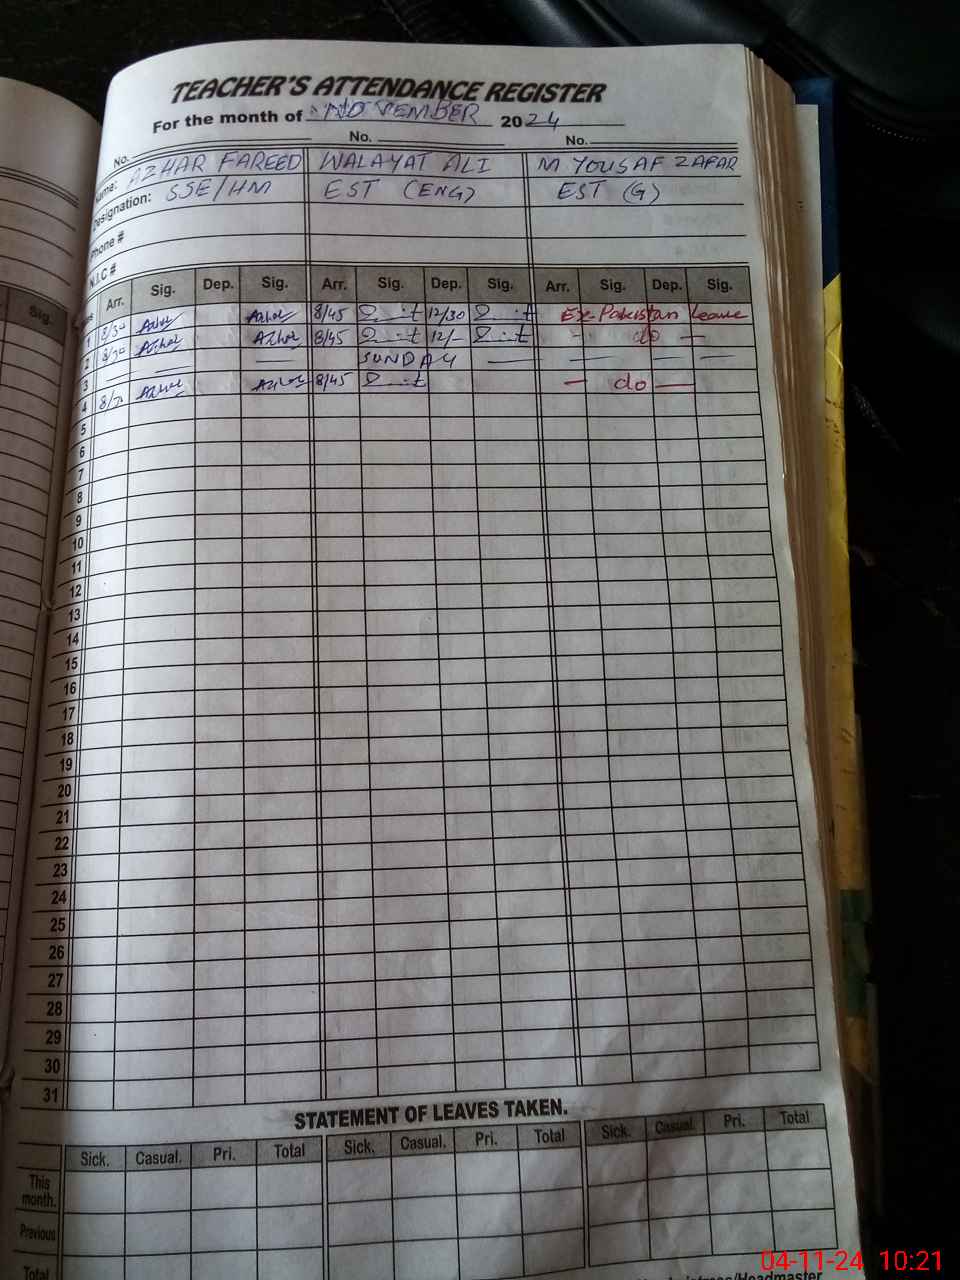 TEACHER'S ATTENDANCE REGISTER
For the month of NOVEMBER 2024
No. No. No.
Name: AZHAR FAREED WALAYAT ALI M YOUSAF ZAFAR
Designation: SSE/HM EST (ENG) EST (G)
Phone #
N.I.C #
Sig. Arr. Sig. Dep. Sig. Arr. Sig. Dep. Sig. Arr. Sig. Dep. Sig.
1 8/30 Azhar Azhar 8/45 12/30 Ex-Pakistan Leave
2 8/30 Azhar Azhar 8/45 12/- - do -
3 SUNDAY
4 Azhar Azhar 8/45 - do -
5
6
7
8
9
10
11
12
13
14
15
16
17
18
19
20
21
22
23
24
25
26
27
28
29
30
31
STATEMENT OF LEAVES TAKEN.
Sick. Casual. Pri. Total Sick. Casual. Pri. Total Sick. Casual. Pri. Total
This month.
Previous
Total
/Headmaster
04-11-24 10:21